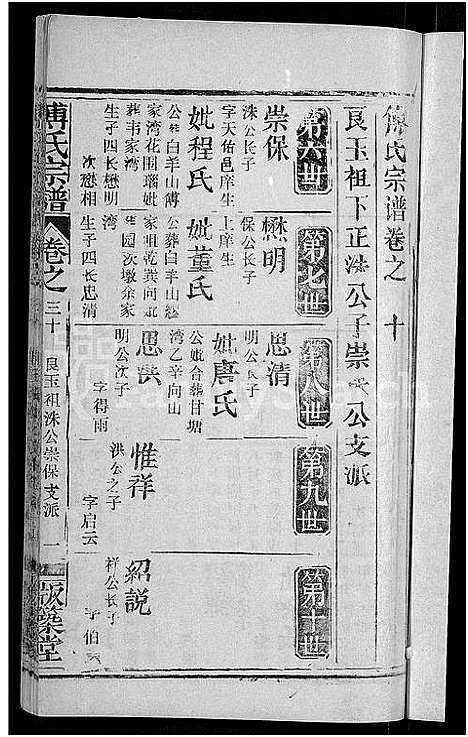 傅氏宗谱卷之 十
良玉祖下正洙公子崇 公支派
第六世
第七世
第八世
第九世
第十世
崇保
洙公长子
字天佑邑庠生
妣程氏
公 白羊山傅
家湾花园瑙妣
葬韦家湾
生子四长懋明
次懋相
懋明
保公长子
上庠生
妣董氏
公葬白羊山
家咀乾巽向妣
园次墩余家
湾
生子四长忠清
思清
明公长子
妣唐氏
公妣合葬甘塘
湾乙辛向山
思
明公次子
字得雨
惟祥
洪公之子
字启云
绍説
祥公长子
字伯
傅氏宗谱
卷之
三十
良玉祖洙公崇保支派
一
版築堂